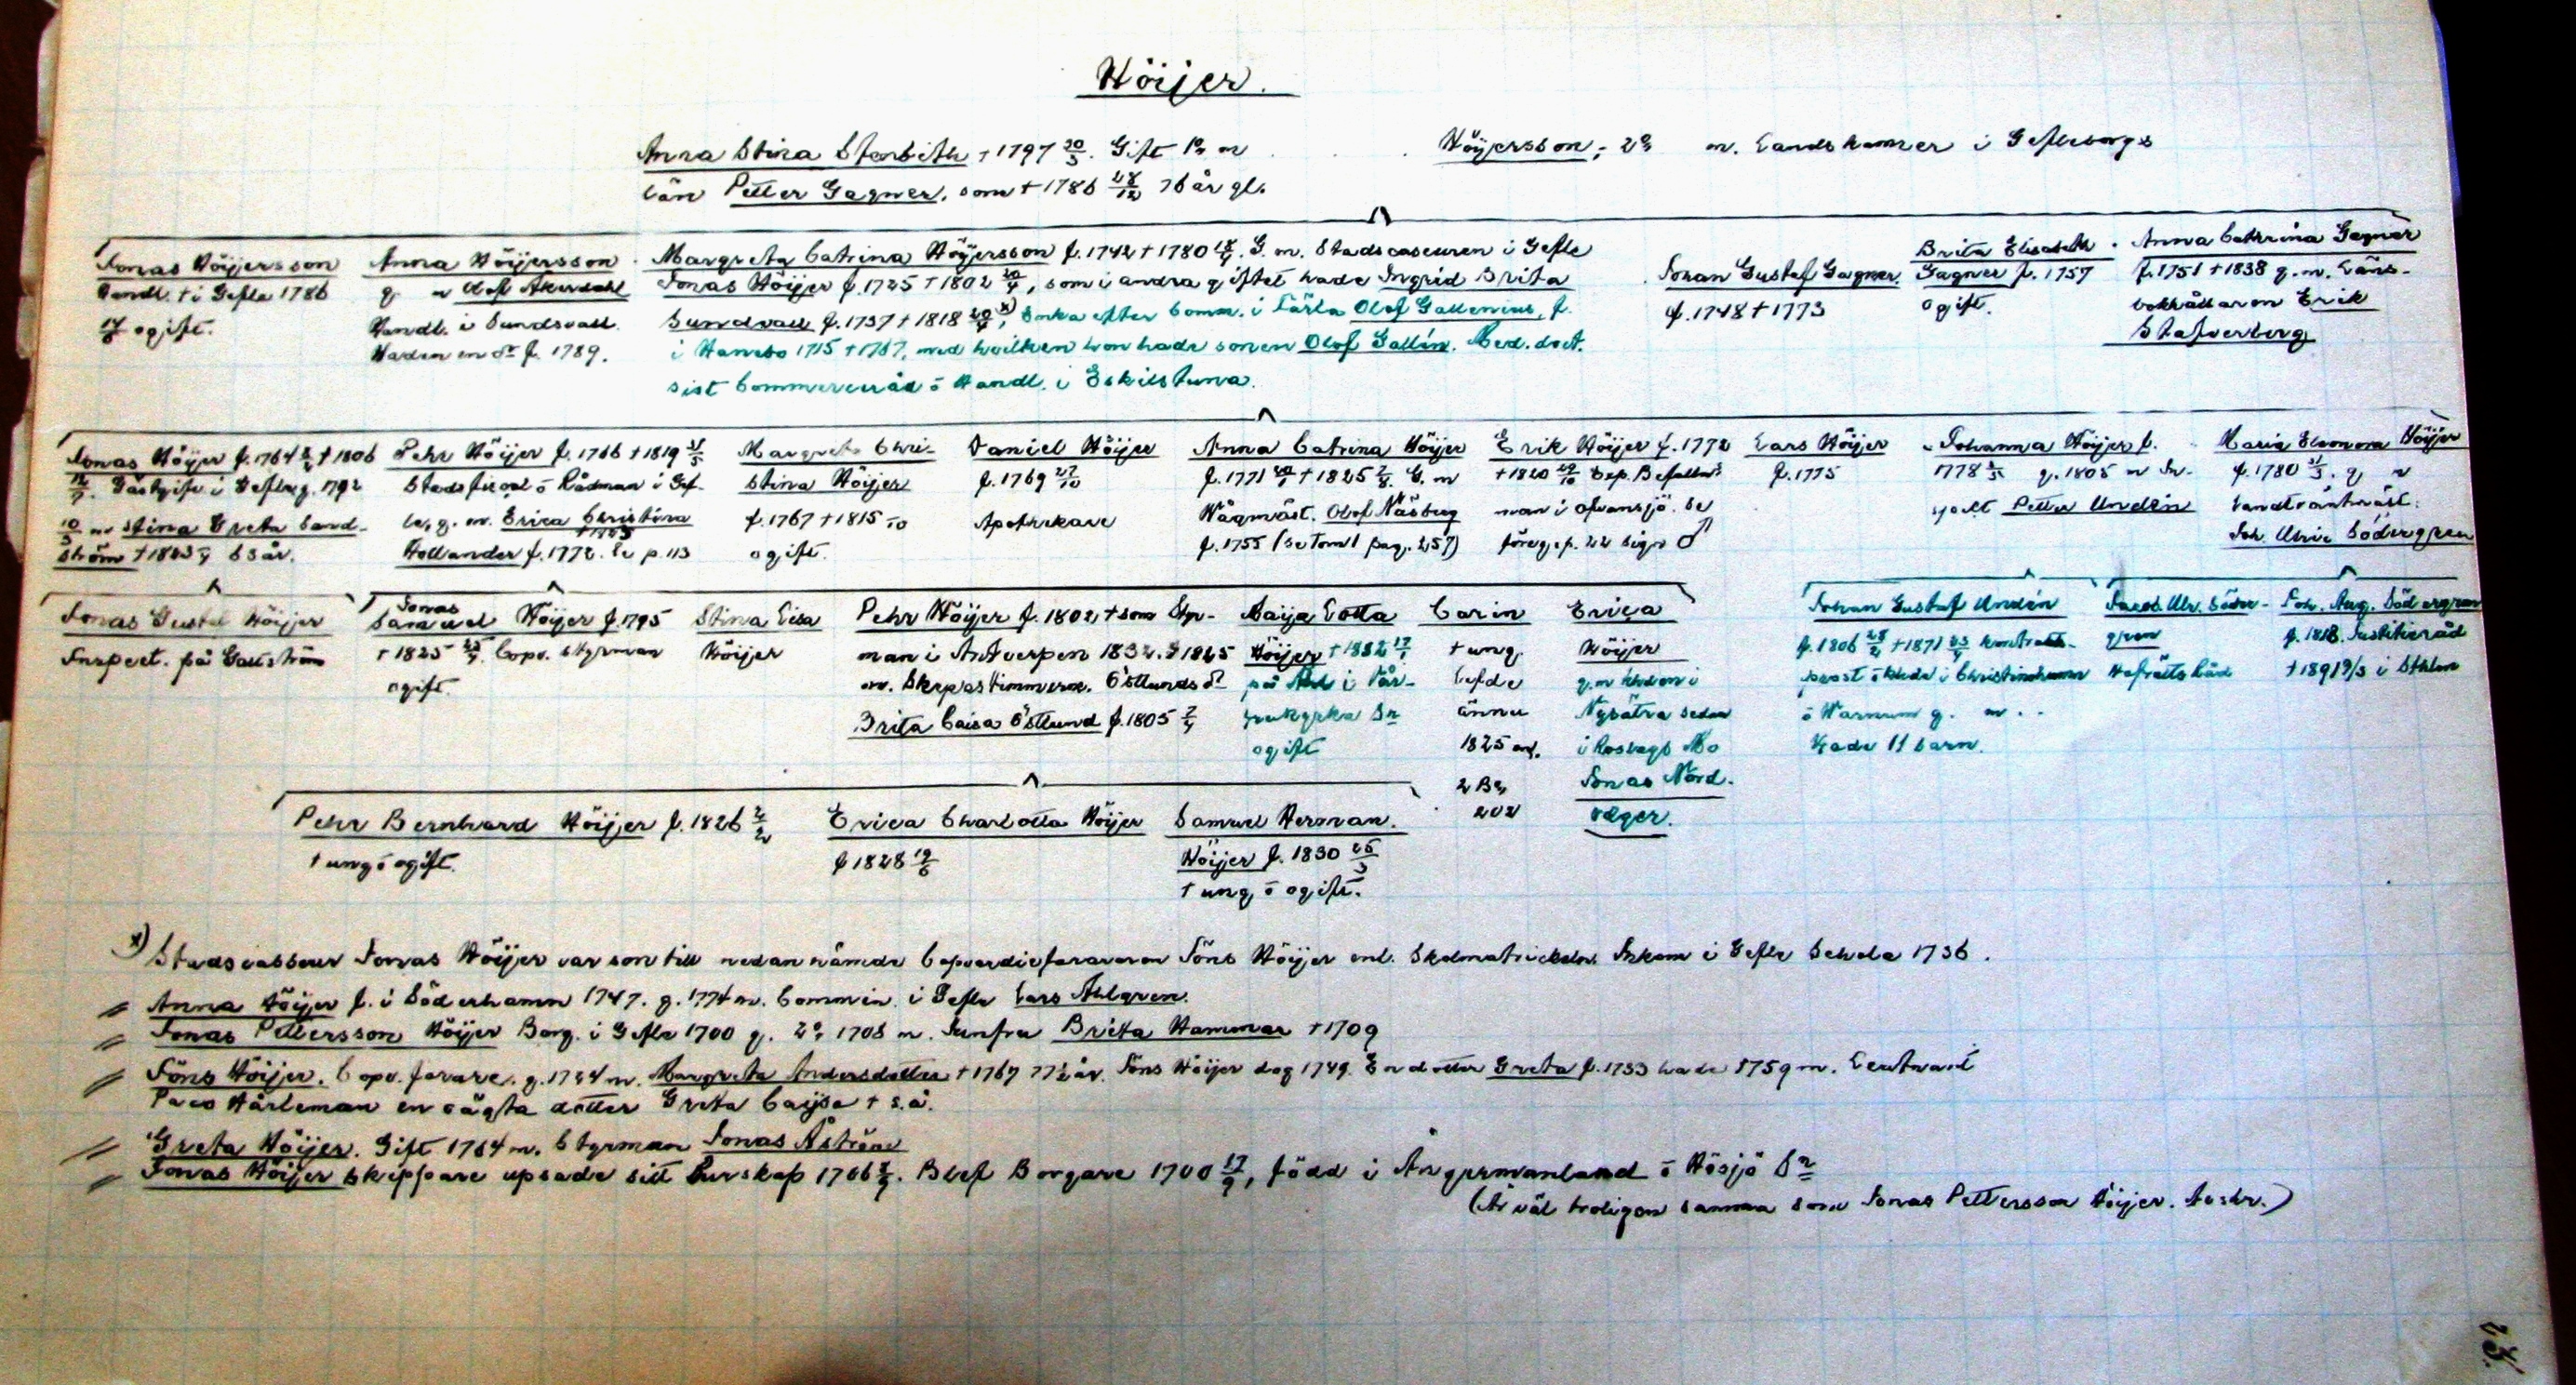 Höijer.
Anna Stina Stenbeth † 1797 20/3. Gift 1o, m . . Höijersson; 2o m. Landskamrer i Gefleborgs
län Petter Gagner, som † 1786 28/12 76 år gl.
Jonas Höijersson
Handl. † i Gefle 1786
ogift.
Anna Höijersson
g. m Olof Åkerdahl
Handl. i Sundsvall.
Hade en dr f. 1789.
Margreta Catrina Höijersson f. 1742 † 1780. G. m. Stadscasseuren i Gefle
Jonas Höijer f. 1725 † 1802, som i andra giftet hade Ingrid Brita
Sundvall f. 1737 † 1818 x), Enka efter Comm. i Färla Olof Gallenius, f.
i Hanebo 1715 † 1767, med hvilken hon hade sonen Olof Gallén. Med. doct.
sist Commerceråd ō Handl. i Eskilstuna.
Johan Gustaf Gagner.
f. 1748 † 1773
Brita Elisabeth
Gagner f. 1757
ogift.
Anna Cathrina Gagner
f. 1751 † 1838 g. m. Läns-
bokhållaren Erik
Stafverberg
Jonas Höijer f. 1764 † 1806
Gästgifv. i Gefle g. 1792
10/5 m Stina Greta Sand-
ström † 1823 63 år.
Pehr Höijer f. 1766 † 1819
Stadsfiscal ō Rådman i Gef-
le, g. m. Erica Christina
Hollander f. 1772. Se p. 113
Margreta Chri-
stina Höijer
f. 1767 † 1815
ogift.
Daniel Höijer
f. 1769 27/10
Apothekare
Anna Catrina Höijer
f. 1771 † 1825. G. m
Vågmäst. Olof Näsberg
f. 1755 (se Tom 1 pag. 257)
Erik Höijer f. 1772
† 1820 Exp. Befallns
man i Ofvansjö. Se
föreg. p. 22 sign ♂
Lars Höijer
f. 1775
Johanna Höijer f.
1778 g. 1805 m
Petter Undén
Maria Eleonora Höijer
f. 1780. g m
Landtränmäst.
Joh. Ulric Södergren
Jonas Gustaf Höijer
Inspect. på Gallström
Jonas
Samuel Höijer f. 1795
† 1825. Copv. styrman
ogift.
Stina Lisa
Höijer
Pehr Höijer f. 1802, † som Styr-
man i Antverpen 1832. G 1825
m. Skepstimmerm. Östlunds dr
Brita Caisa Östlund f. 1805
Maija Lotta
Höijer † 1832
på i Får-
kyrka Sn
ogift
Carin
† ung.
Lefde
ännu
1825
Erica
Höijer
g. m i
Nysätra sedan
i Roslags Bro
Jonas Nord-
Johan Gustaf Undén
f. 1806 † 1871 Kontrakts-
prost ō Khde i Christinehamn
ō Warnum g. m . .
hade 11 barn.
Jacob Ulr. Söder-
gren
Hofrätts Råd
Joh. Aug. Södergren
f. 1818. Justitieråd
† 1891 9/3 i Sthlm
Pehr Bernhard Höijer f. 1826 2/2
† ung ō ogift.
Erica Charlotta Höijer
f 1828
Samuel Herman
Höijer f. 1830
† ung ō ogift.
x) Stadscasseur Jonas Höijer var son till nedannämde Copvardiefararen Jöns Höijer enl. Skolmatrickeln. Inkom i Gefle Schola 1736.
Anna Höijer f. i Söderhamn 1747. g. 1774 m. Commin. i Gefle Lars Ahlgren.
Jonas Pettersson Höijer Borg. i Gefle 1700 g. 2o, 1708 m. Junfru Brita Hammar † 1709
Jöns Höijer. Copv. farare. g. 1724 m. Margreta Andersdotter † 1767 77½ år. Jöns Höijer dog 1749. En dotter Greta f. 1733 hade 1759 m. Leutnant
Hårleman en oägta dotter Greta Cajsa † s. å.
Greta Höijer. Gift 1764 m. Styrman Jonas Åström
Jonas Höijer skeppare upsade sitt Burskap 1706. Blef Borgare 1700 17/9, född i Ångermanland ō Hösjö Sn
(Är väl troligen samma som Jonas Pettersson Höijer. Afskr.)
23.